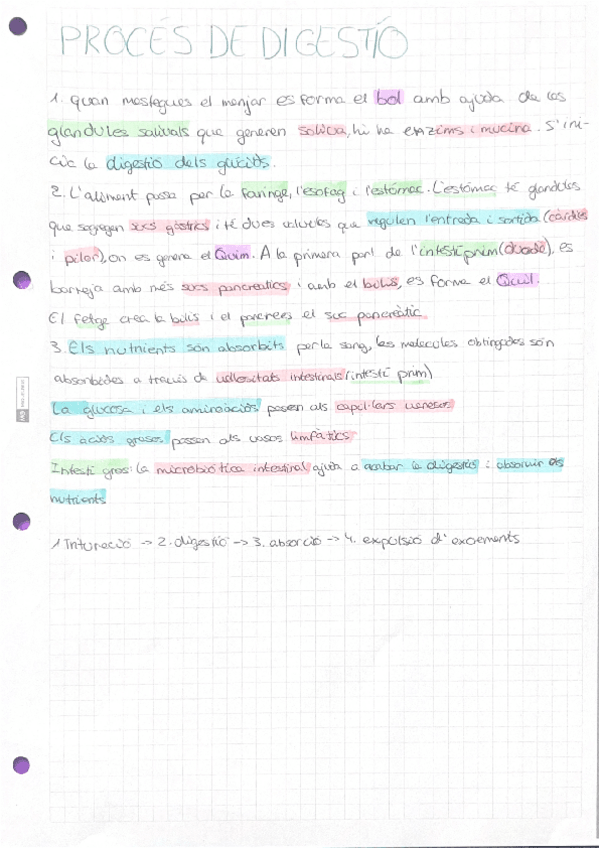 PROCÉS DE DIGESTÍO
1. Quan mastegues el menjar es forma el bol amb ajuda de les
glandules salivals que generen saliva, hi ha enzims i mucina. S'ini-
cia la digestio dels glucids.
2. L'aliment passa per la faringe, l'esofag i l'estómac. L'estómac té glandules
que segreguen sucs gàstrics i té dues valvules que regulen l'entrada i sortida (cardies
i pilor), on es genera el Quim. A la primera part de l'intestí prim (duodè), es
barreja amb més sucs pancreatics i amb el bilis, es forma el Quil.
El fetge crea la bilis i el pancrees el suc pancreàtic.
3. Els nutrients són absorbits per la sang, les molecules obtingudes són
absorbides a través de vellositats intestinals (intestí prim)
La glucosa i els aminoàcids passen als capil·lars venosos
Els àcids grasos passen als vasos limfàtics
Intestí gros: la microbiòtica intestinal ajuda a acabar la digestió i absorvir els
nutrients
1 Trituració -> 2. digestió -> 3. absorció -> 4. expulsió d'excrements